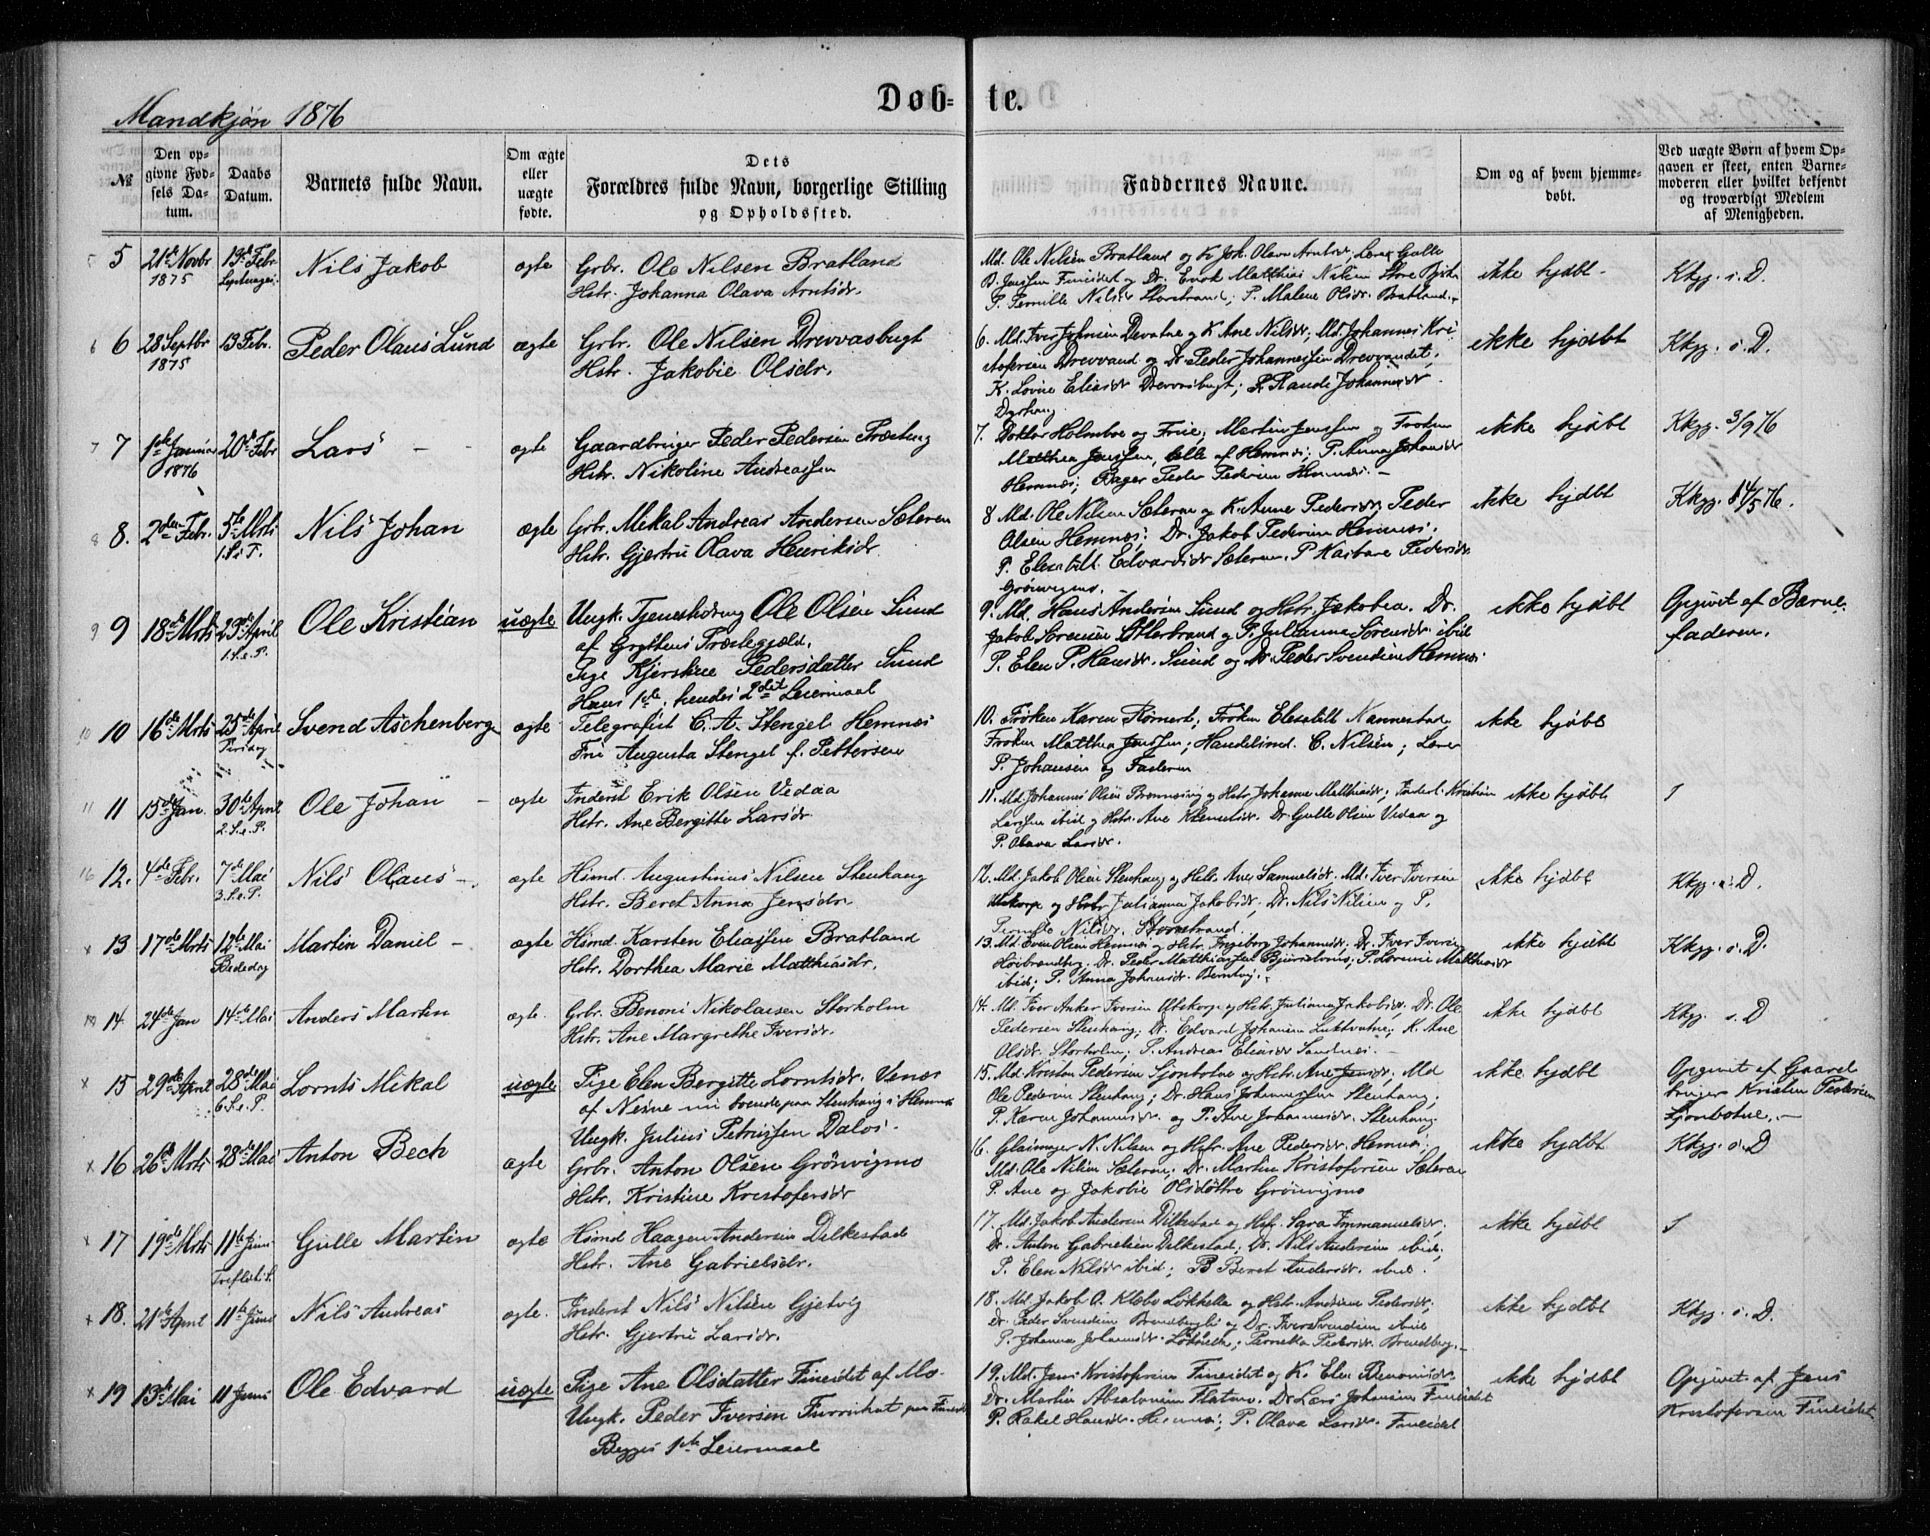 Mandkjøn 1876
Døb- te.
№
Den opgivne Fødsels Datum.
Daabs Datum.
Barnets fulde Navn.
Om ægte eller uægte fødte.
Dets Forældres fulde Navn, borgerlige Stilling og Opholdssted.
Faddernes Navne.
Om og af hvem hjemmedøbt.
Ved uægte Børn af hvem Opgaven er skeet, enten Barnemoderen eller hvilket bekjendt og troværdigt Medlem af Menigheden.
5 21de Novbr 1875 13de Febr Nils Jakob ægte Grbr. Ole Nilsen Bratland
Hstr. Johanna Olava Arntsdr.
Md. Ole Nilsen Bratland og K. Joh. Olava Arntsdr, Lærer Gulle
B. Jenssen Fineidet og Dr. Enok Matthias Nilsen
P. Pernille Nilsdr Storstrand; P. Malene Olsdr. Bratland.
ikke hjdbt. Kkgg. s. D.
6 28 Septbr 1875 13 Febr. Peder Olaus Lund ægte Grbr. Ole Nilsen Drevvasbugt
Hstr. Jakobie Olsdr.
6. Md. Iver Johnsen Devatne og K. Ane Nilsdr; Md. Johannes Kri
stofersen Drevvand og Dr. Peder Johannessen Drevvandet;
K. Lovise Eliasdr Drevvasbugt; P. Randi Johannesdr.
ikke hjdbt Kkgg. s. D.
7 1ste Januar 1876 20de Febr Lars ægte Gaardbruger Peder Pedersen
Hstr. Nikoline Andreassen
7. Doktor Holmboe og Frue; Martin Jenssen og Frøken
Matthea Jenssen, alle af Hemnæs; P. Anna Johansdr
Hemnæs; Bager Peder Pedersen Hemnæs.
ikke hjdbt Kkgg. 3/9 76
8. 2den Febr. 5te Mrts 1. S. i F. Nils Johan ægte Grbr. Mekal Andreas Andersen Sæteren
Hstr. Gjertru Olava Henriksdr.
8 Md. Ole Nilsen Sæteren og K. Anne Pedersdr, Peder
Olsen Hemnæs; Dr. Jakob Pedersen Hemnæs.
P. Elesabilt Edvardsdr Sæteren. P. Karbare Pedersdr
Grønvigmo.
ikke hjdbt Kkgg. 14/5 76.
9 18de Mrts 23de April 1. S. e. P. Ole Kristian uægte Ungk. Tjenestedreng Ole Olsen Sund
af Gryttens Præstegjæld.
Pige Kjerstine Pedersdatter Sund
Hans 1ste, hendes 2det Leiermaal
9. Md. Hans Andersen Sund og Hstr. Jakobea. Dr.
Jakob Sørensen Ytterstrand og P. Julianna Sørensdr. ibid
P. Elen P. Hansdr. Sund og Dr. Peder Svendsen Hemnæs.
ikke hjdbt Opgivet af Barne-
faderen.
10 16de Mrts 25de April Tirsdag Svend Aschenberg ægte Telegrafist C. A. Stengel Hemnæs
Fru Augusta Stengel f. Pettersen
10. Frøken Karen; Frøken Elesabilt Nannestad
Frøken Matthea Jenssen; Handelsmd. C. Nilsen; Lærer
P. Johansen og Faderen
ikke hjdbt
11 15de Jan. 30de April 2. S. e. P. Ole Johan ægte Inderst Erik Olsen Vedaa
Hstr. Ane Bergitte Larsdr.
11. Md. Johannes Olsen og Hstr. Johanne Matthiasdr; Inderst Kristian
Larssen ibid og Hstr. Ane Klemetsdr. Dr. Gulle Olsen Vedaa og
P. Olava Larsdr.
ikke hjdbt
12. 4de Febr. 7de Mai 3. S. e. P. Nils Olaus ægte Husmd. Augustinus Nilsen Stenhaug
Hstr. Beret Anna Jensdr.
12. Md. Jakob Olsen Stenhaug og Hstr. Ane Samuelsdr. Md. Iver Iversen
Utskarpe og Hstr Julianna Jakobsdr. Dr. Nils Nilsen og P.
Pernille Nilsdr. Storstrand.
ikke hjdbt Kkgg. s. D.
13 17de Mrts 12te Mai Bededag Martin Daniel ægte Husmd. Karsten Eliassen Bratland
Hstr. Dorthea Marie Matthiasdr.
13. Md. Sven Olsen Hemnæs og Hstr. Ingeborg Johannesdr; Dr. Iver Iversen
ibid; P. Anna Johnsdr.
ikke hjdbt Kkgg. s. D.
14 24de Jan 14de Mai Anders Martin ægte. Grbr. Benoni Nikolaisen Storholm
Hstr. Ane Margrethe Iversdr.
14. Md. Iver Anker Iversen Utskarpe og Hstr. Juliana Jakobsdr. Dr. Ole
Pedersen Stenhaug; Dr. Edvard Johansen Luktvatne; K. Ane
Olsdr. Storholm; P. Andrea Eliasdr Sandnæs.
ikke hjdbt Kkgg. s. D
15 29de April 28de Mai 6. S. e. P. Lornts Mikal uægte Pige Elen Bergitte Lorntsdr. Venæs
af Nesne nu boende paa Stenhaug i Hemnæs
Ungk. Julius Petrussen Dalos.
15. Md. Kristen Pedersen Sjonbotne og Hstr. Ane Jensdr. Md
Ole Pedersen Stenhaug; Dr. Hans Johannessen Stenhaug;
P. Karen Johannesdr. og P. Ane Johannesdr. Stenhaug
ikke hjdbt Opgivet af Gaard
bruger Kristen Pedersen
Sjonbotne.
16 26de Mrts 28de Mai Anton Bech ægte Grbr. Anton Olsen Grønvigmo
Hstr. Kristine Kristofersdr
16. N. Nilsen og Hstr. Ane Pedersdr. Hemnæs;
Md. Ole Nilsen Sæteren. Dr. Martin Kristofersen Sæteren
P. Ane og Jakobie Olsdøttre Grønvigmo
ikke hjdbt Kkgg. s. D
17 19de Mrts 11te Juni Gulle Martin ægte Husmd Haagen Andersen Dilkestad
Hstr. Ane Gabrielsdr.
17. Md. Jakob Andersen Dilkestad og Hstr. Sara Immanuelsdr.
Dr. Anton Gabrielsen Dilkestad; Dr. Nils Andersen ibid;
P. Elen Nilsdr ibid; P. Beret Andersdr. ibid.
ikke hjdbt
18. 21de April 11te Juni Nils Andreas ægte. Inderst Nils Nilsen Gjetvig
Hstr. Gjertru Larsdr.
18. Md. Jakob A. Klæbo Løkkelle og Hstr. Andrine Pedersdr;
Dr. Peder Svendsen og Dr. Iver Svendsen ibid
P. Johanna Johannesdr.
ikke hjdbt Kkgg. s. D.
19 13de Mai 11 Juni Ole Edvard uægte Pige Ane Olsdatter Fineidet af Mo.
Ungk. Peder Iversen Furrichat paa Fineidet
Begges 1ste Leiermaal
19. Md. Jens Kristofersen Fineidet og K. Elen Benonisdr.
Dr. Martin Absalonsen Flaten. Dr Lars Johansen Fineidet
P. Rakel Hansdr. Hemnæs; P. Olava Larsdr. Fineidet
ikke hjdbt Opgivet af Jens
Kristofersen Fineidet